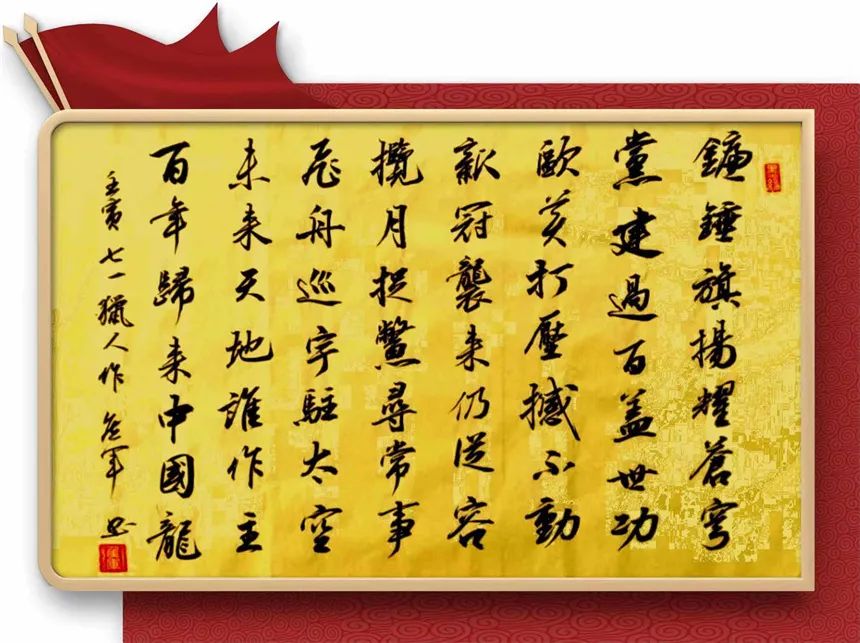 鐮錘旗揚耀蒼穹
黨建過百蓋世功
歐美打壓撼不動
新冠襲來仍從容
攬月捉鱉尋常事
飛舟巡宇駐太空
未来天地誰作主
百年歸来中國龍
壬寅七一獵人作